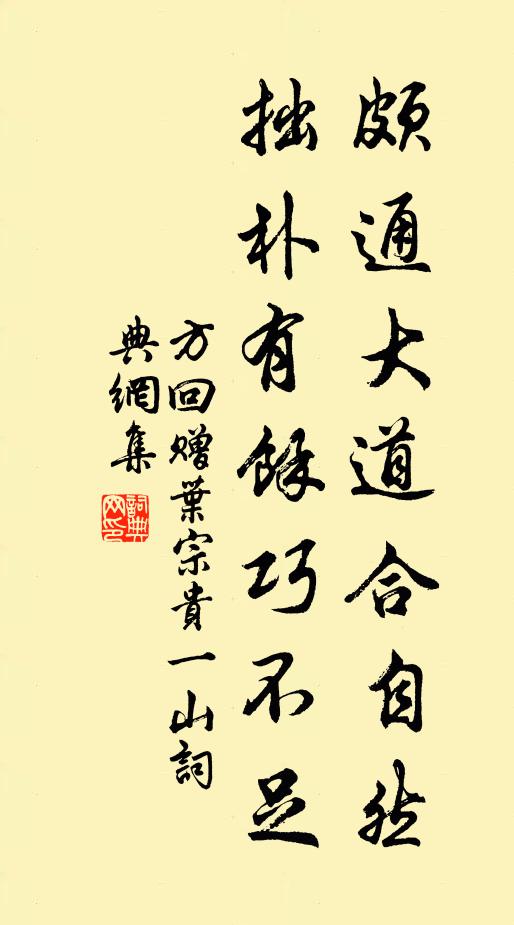 頗通大道合自然
拙朴有餘巧不足
方回赠葉宗貴一山詞
典網集
詞典网印